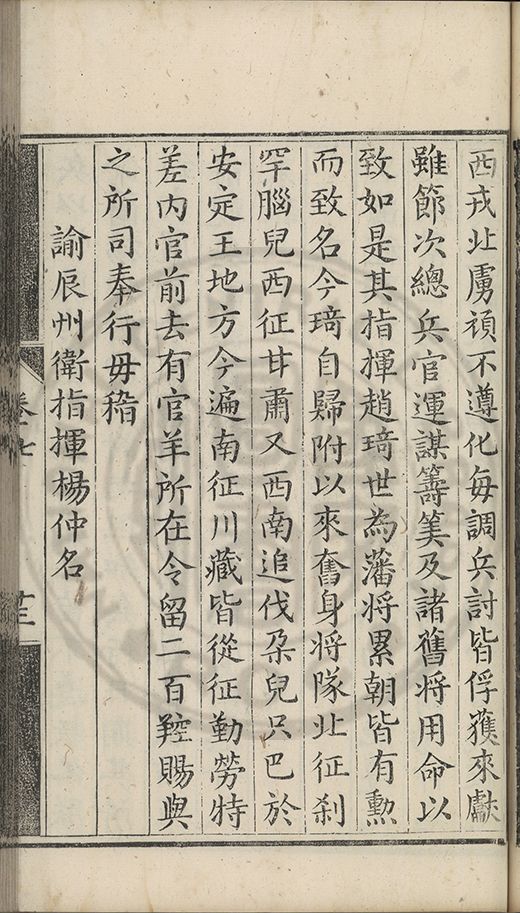 西戎北虜頑不遵化每調兵討皆俘獲來獻
雖節次總兵官運謀籌筭及諸舊將用命以
致如是其指揮趙琦世為藩將累朝皆有勲
而致名今琦自歸附以來奮身將隊北征剎
罕腦兒西征甘肅又西南追伐朶兒只巴於
安定王地方今遍南征川藏皆從征勤勞特
差內官前去有官羊所在令留二百羫賜與
之所司奉行毋稽
諭辰州衛指揮楊仲名
卷七
廿三